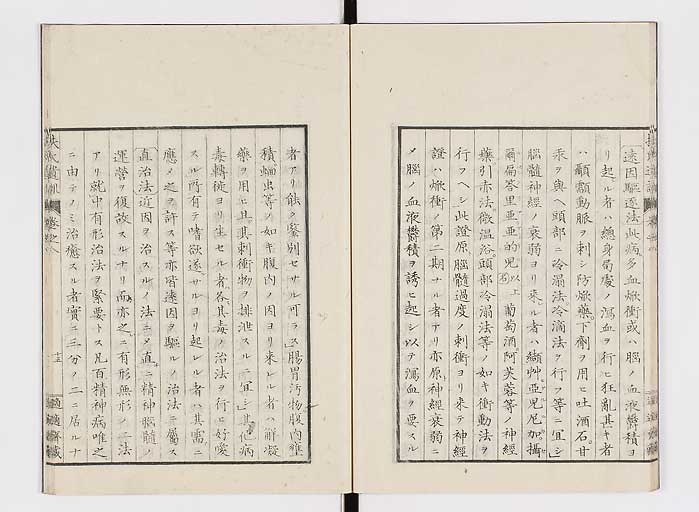 遠因驅逐法此病多血焮衝或ハ腦ノ血液鬱積ヨ
リ起ル者ハ總身局處ノ瀉血ヲ行ヒ狂亂甚キ者
ハ顳顬動脈ヲ刺シ防焮藥下劑ヲ用ヒ吐酒石甘
汞ヲ與ヘ頭部ニ冷溻法冷滴法ヲ行フ等ニ宜シ
腦髓神經ノ衰弱ヨリ來ル者ハ纈艸亞兒尼加攝
爾扁答里亞亞的兒以上各葡萄酒阿芙蓉等ノ神經
藥引赤法微溫浴頭部冷溻法等ノ如キ衝動法ヲ
行フヘシ此證原腦髓過度ノ刺衝ヨリ來テ神經
證ハ焮衝ノ第二期ナル者アリ亦原神經衰弱ニ
メ腦ノ血液鬱積ヲ誘ヒ起シ以テ瀉血ヲ要スル
者アリ能ク鑒別セサル可ラス腸胃汚物腹內壅
積蛔虫等ノ如キ腹內ノ因ヨリ來レル者ハ解凝
藥ヲ用ヒ其刺衝物ヲ排泄スルニ宜シ其他病
毒轉徙ヨリ生セル者各其毒ノ治法ヲ行ヒ好
スル所有テ嗜欲遂サルヨリ起レル者ハ其需ニ
應メ之ヲ許ス等亦皆遠因ヲ驅ルノ治法ニ屬ス
直治法近因ヲ治スルノ法ニメ直ニ精神腦髓ノ
運營ヲ復故スルナリ而亦之ニ有形無形ノ二法
アリ就中有形治法ヲ緊要トス凡百精神病唯之
ニ由テノミ治癒スル者實ニ三分ノ二ニ居ルナ
扶氏遺訓 卷之八
十五
適適齋藏